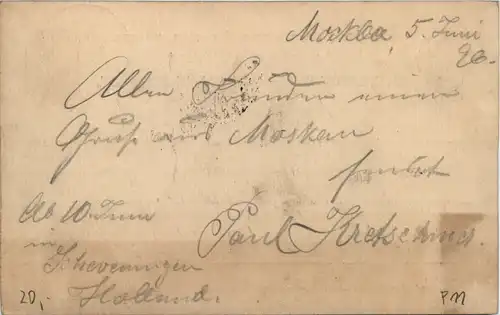 Москва, 5. Juni
96.
Allen Freunden einen
Gruß aus Moskau
sendet
Paul Kretschmer
Ab 10. Juni
in
Scheveningen
Holland.
20,-